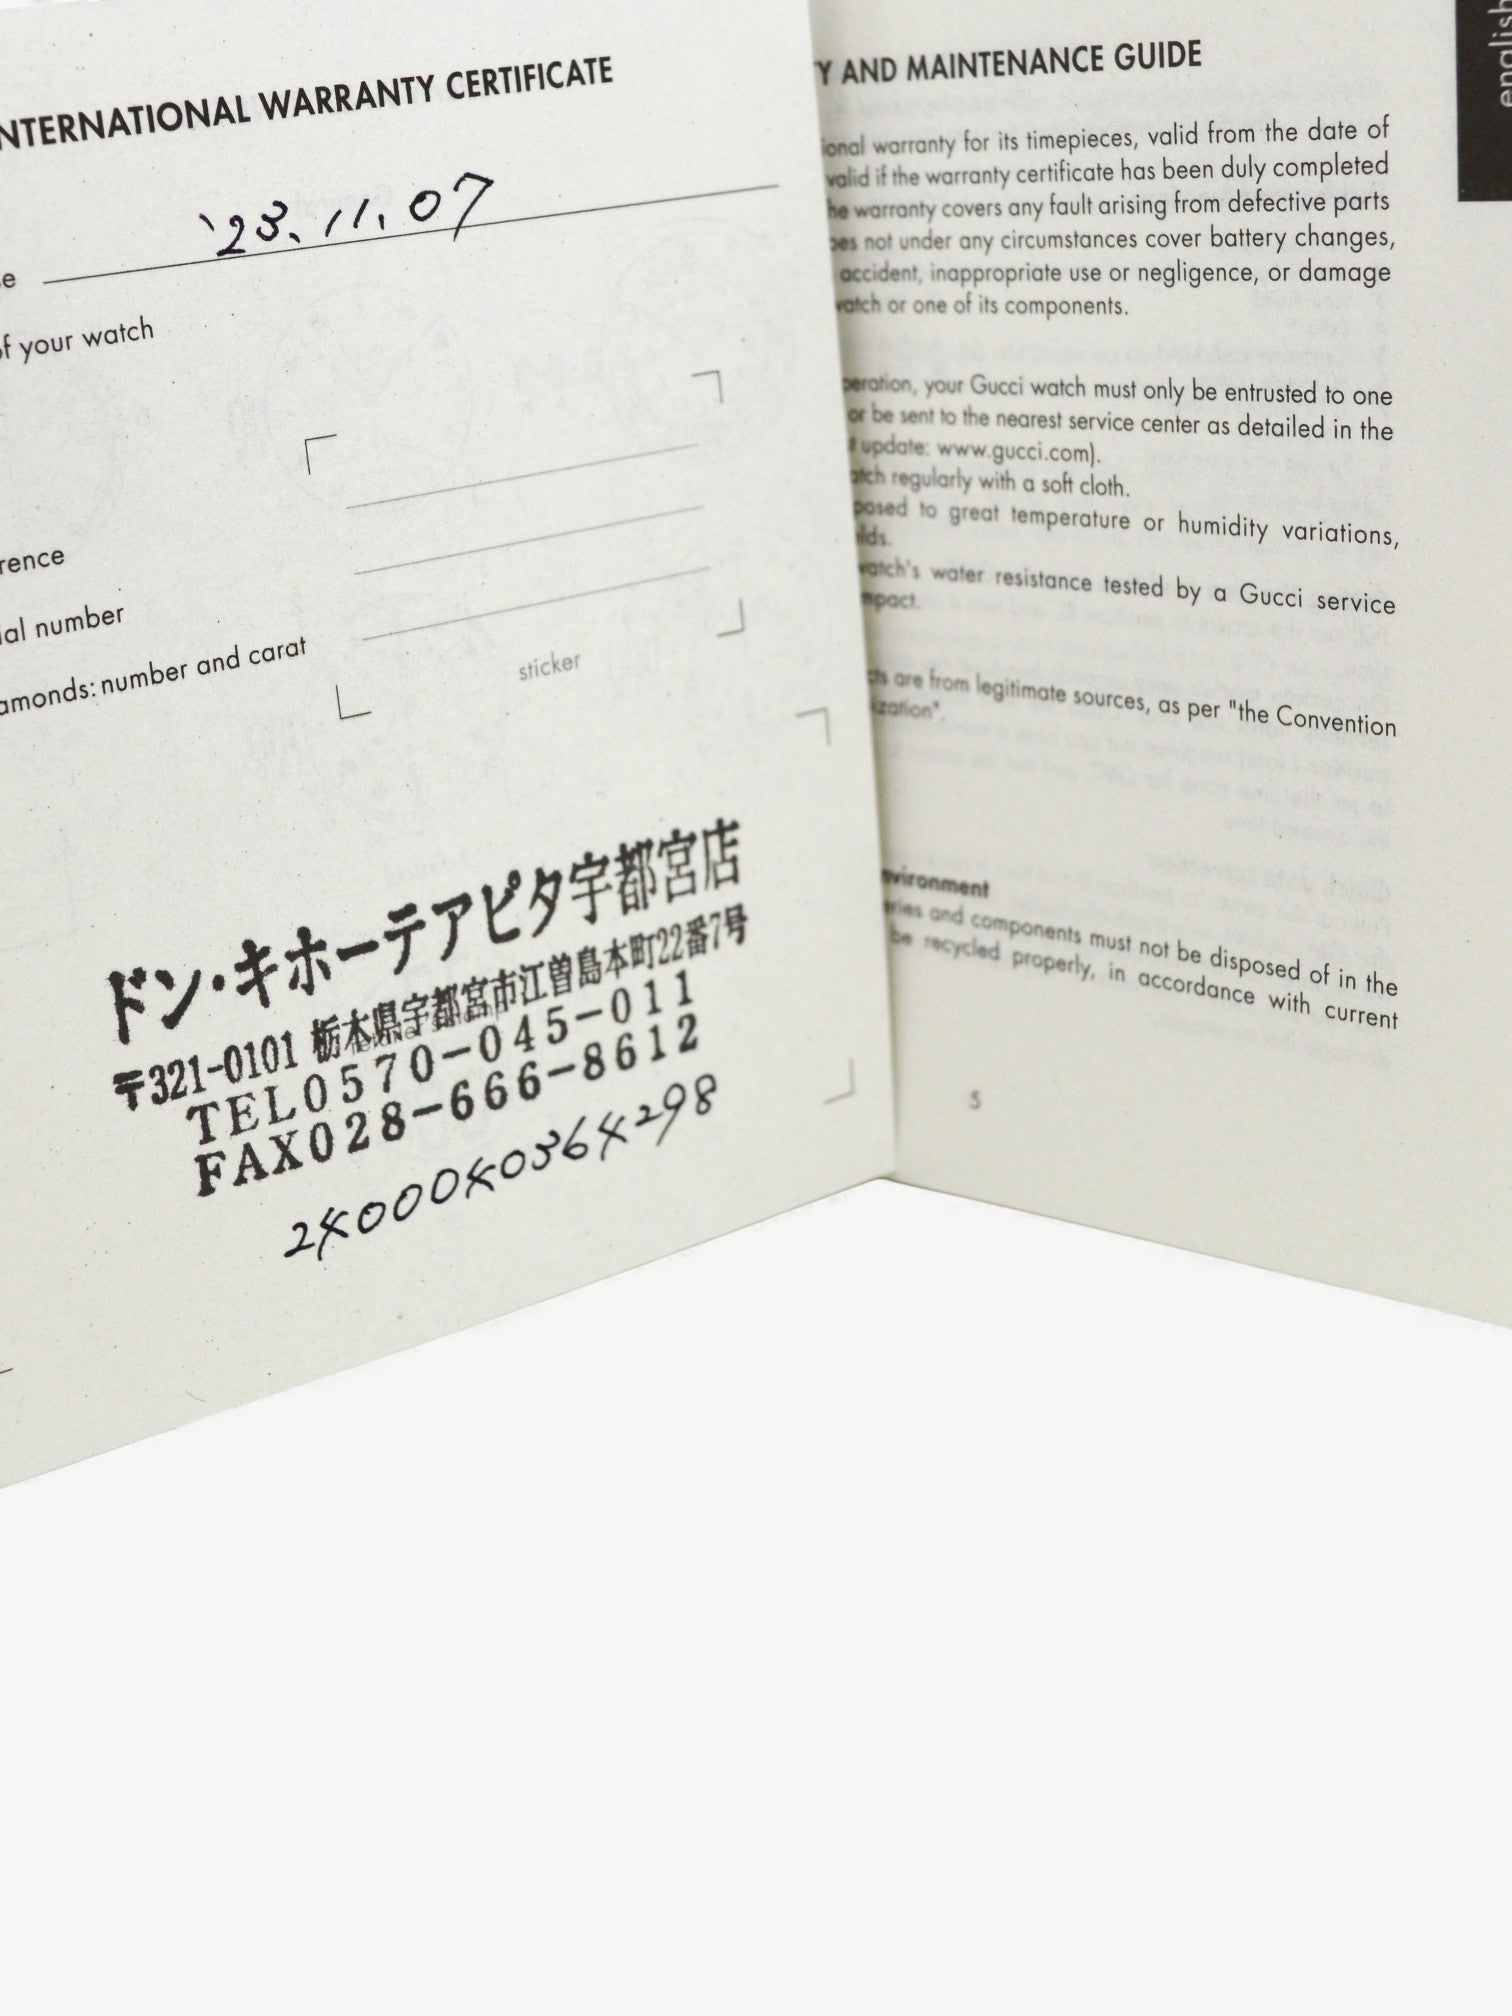 INTERNATIONAL WARRANTY CERTIFICATE
'23.11.07
of your watch
number
number and carat
sticker
ドン・キホーテアピタ宇都宮店
〒321-0101 栃木県宇都宮市江曽島本町22番7号
TEL0570-045-011
FAX028-666-8612
AND MAINTENANCE GUIDE
warranty for its timepieces, valid from the date of
valid if the warranty certificate has been duly completed
warranty covers any fault arising from defective parts
not under any circumstances cover battery changes,
accident, inappropriate use or negligence, or damage
or one of its components.
your Gucci watch must only be entrusted to one
or be sent to the nearest service center as detailed in the
update: www.gucci.com).
regularly with a soft cloth.
to great temperature or humidity variations,
water resistance tested by a Gucci service
are from legitimate sources, as per "the Convention
and components must not be disposed of in the
be recycled properly, in accordance with current
5
english